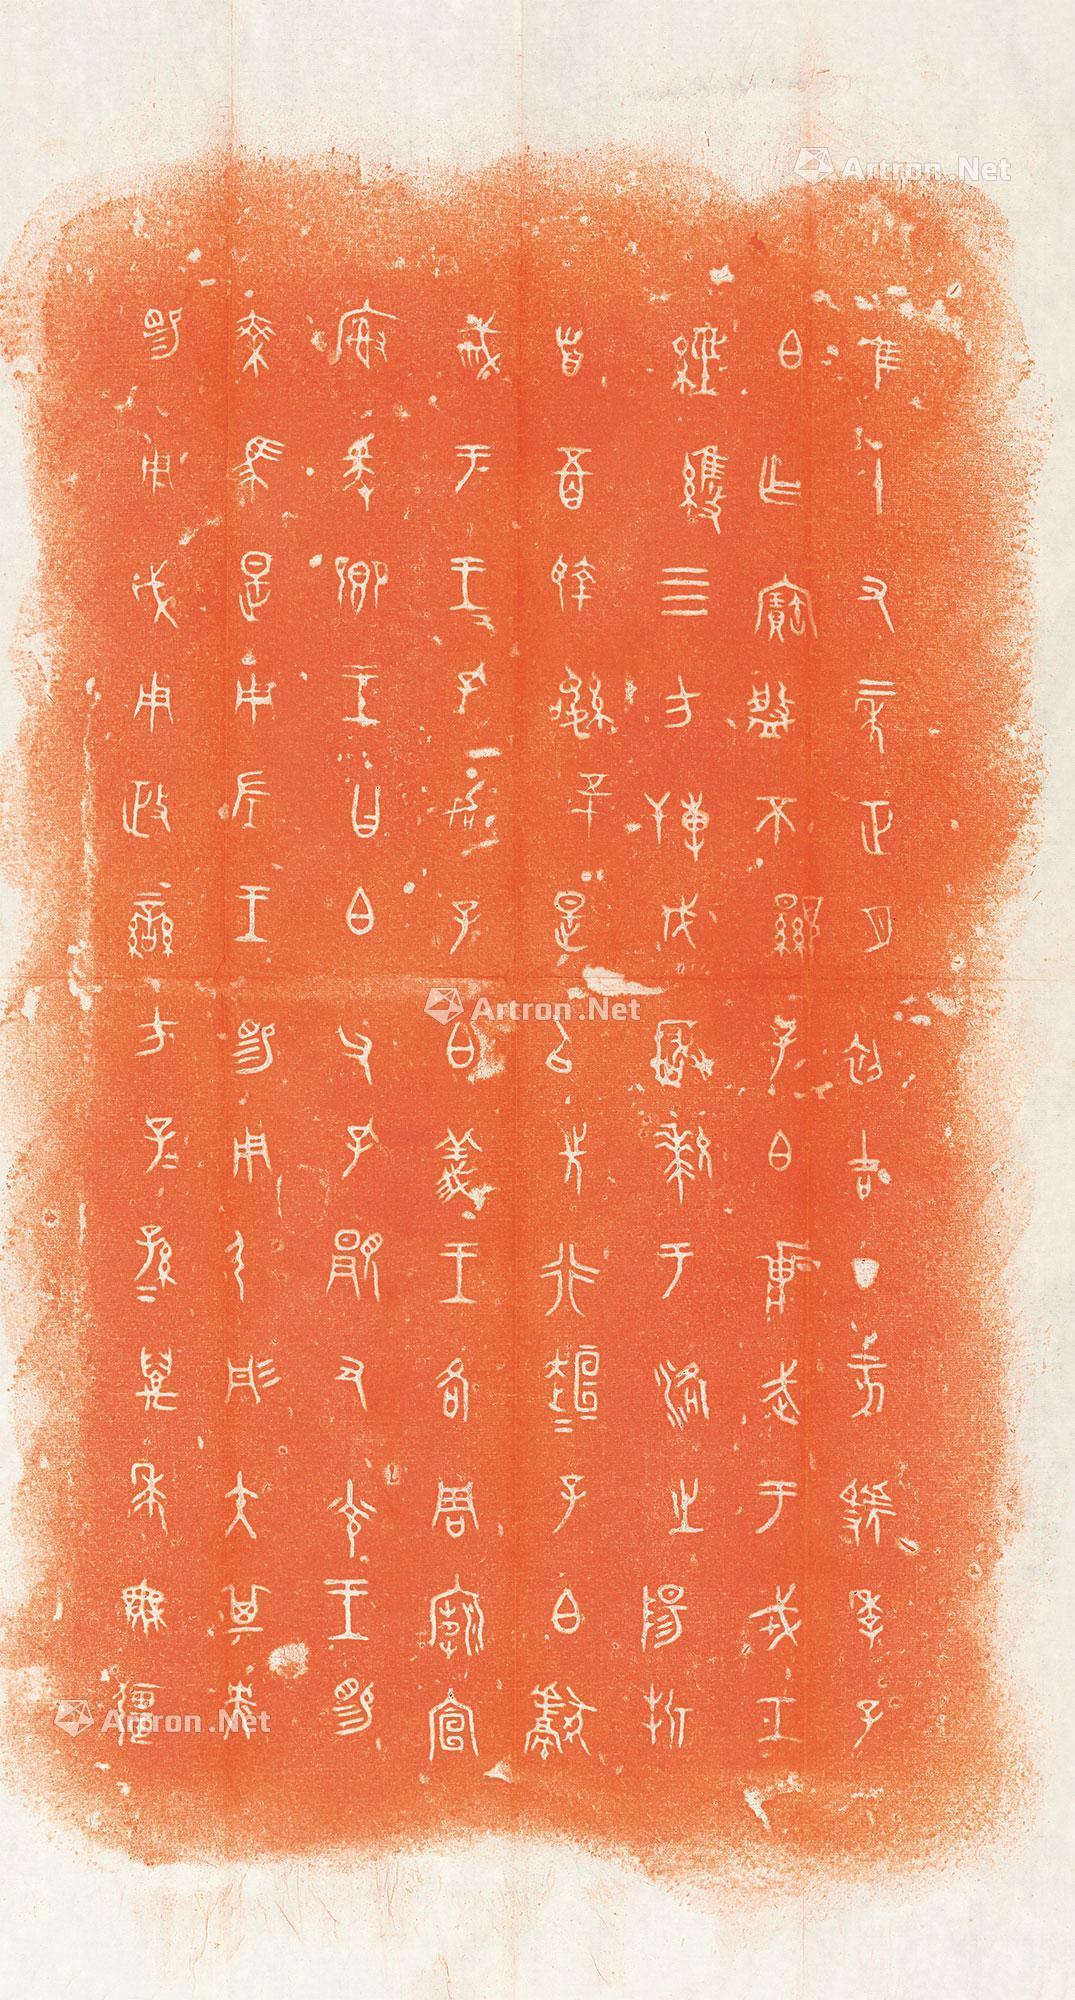 隹十又二年正月初吉丁亥虢季子
白乍寶盤不顯子白壯武于戎工
經維四方搏伐玁狁于洛之陽折
首五百執訊五十是以先行趄=子白獻
戒于王王孔加子白義王各周廟宣
廚爰卿王曰白父孔顯又光王睗
乘馬是用左王睗用弓彤矢其央
睗用戉用政蠻方子=孫=萬年無疆
Artron.Net
Artron.Net
Artron.Net